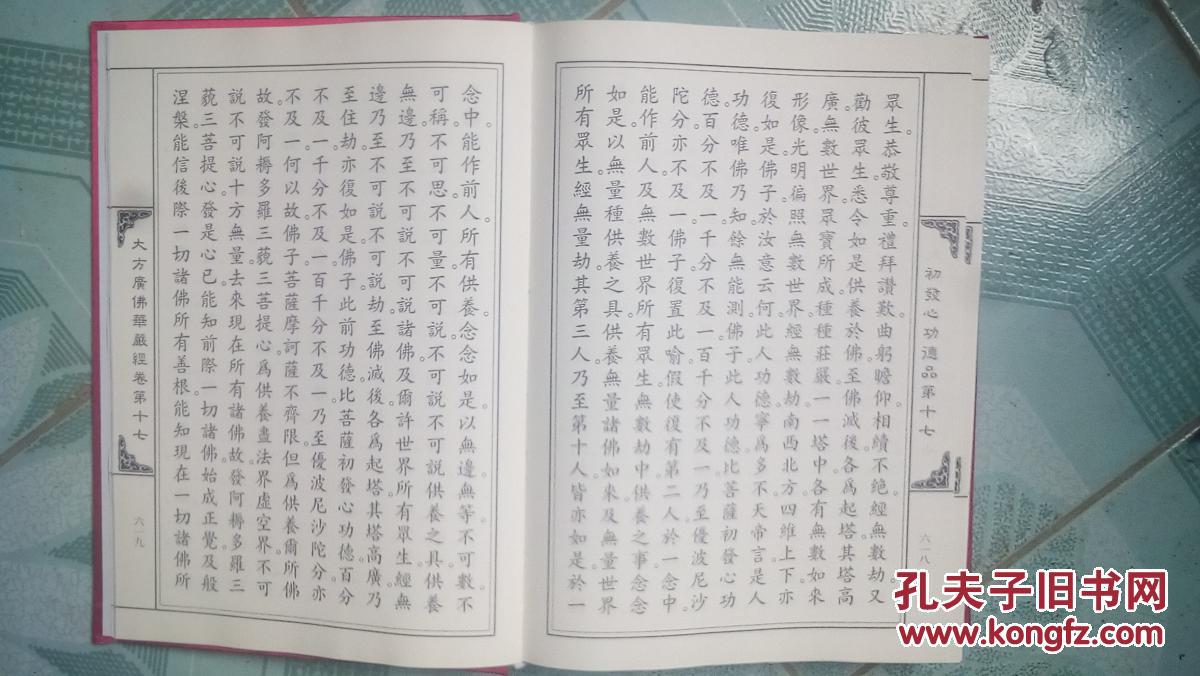 初發心功德品第十七
六一八
眾生。恭敬尊重。禮拜讚歎。曲躬瞻仰。相續不絕。經無數劫。又
勸彼眾生。悉令如是供養於佛。至佛滅後。各為起塔。其塔高
廣。無數世界眾寶所成。種種莊嚴。一一塔中。各有無數如來
形像。光明徧照無數世界。經無數劫。南西北方。四維上下。亦
復如是。佛子。於汝意云何。此人功德寧為多不。天帝言。是人
功德。唯佛乃知。餘無能測。佛子。此人功德。比菩薩初發心功
德。百分不及一。千分不及一。百千分不及一。乃至優波尼沙
陀分。亦不及一。佛子。復置此喻。假使復有第二人。於一念中。
能作前人及無數世界所有眾生。無數劫中供養之事。念念
如是。以無量種供養之具。供養無量諸佛如來。及無量世界
所有眾生。經無量劫。其第三人。乃至第十人。皆亦如是。於一
念中。能作前人所有供養。念念如是。以無邊。無等。不可數。不
可稱。不可思。不可量。不可說。不可說不可說供養之具。供養
無邊。乃至不可說不可說諸佛。及爾許世界所有眾生。經無
邊。乃至不可說不可說劫。至佛滅後。各為起塔。其塔高廣。乃
至住劫。亦復如是。佛子。此前功德。比菩薩初發心功德。百分
不及一。千分不及一。百千分不及一。乃至優波尼沙陀分。亦
不及一。何以故。佛子。菩薩摩訶薩不齊限。但為供養爾所佛
故。發阿耨多羅三藐三菩提心。為供養盡法界虛空界。不可
說不可說十方無量。去來現在所有諸佛故。發阿耨多羅三
藐三菩提心。發是心已。能知前際一切諸佛。始成正覺。及般
涅槃。能信後際一切諸佛。所有善根。能知現在一切諸佛。所
大方廣佛華嚴經卷第十七
六一九
孔夫子旧书网
www.kongfz.com